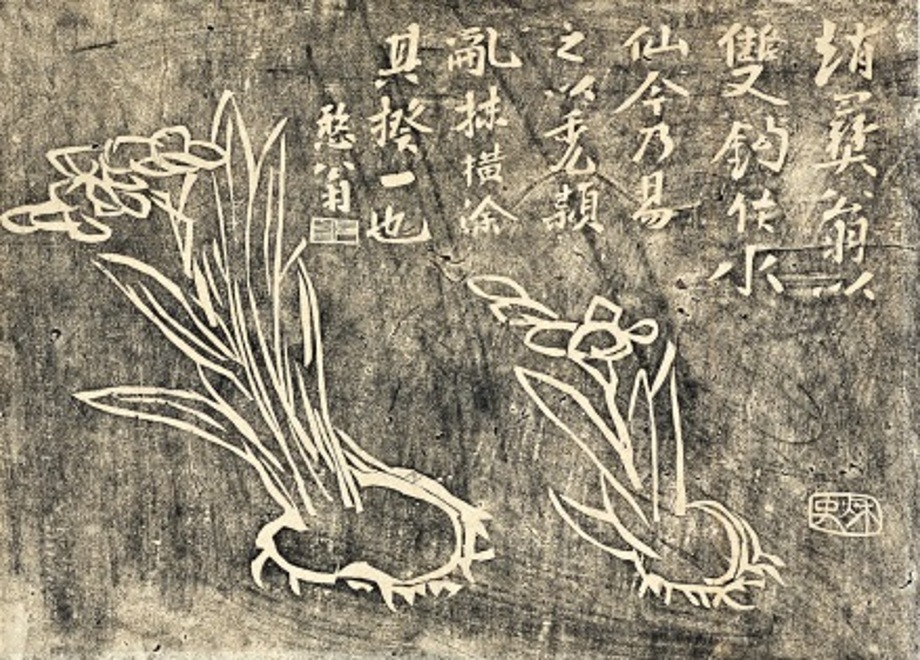 趙彝翁以
雙鈎作水
仙今乃易
之以禿穎
亂抹橫涂
其揆一也
憨翁
秋史